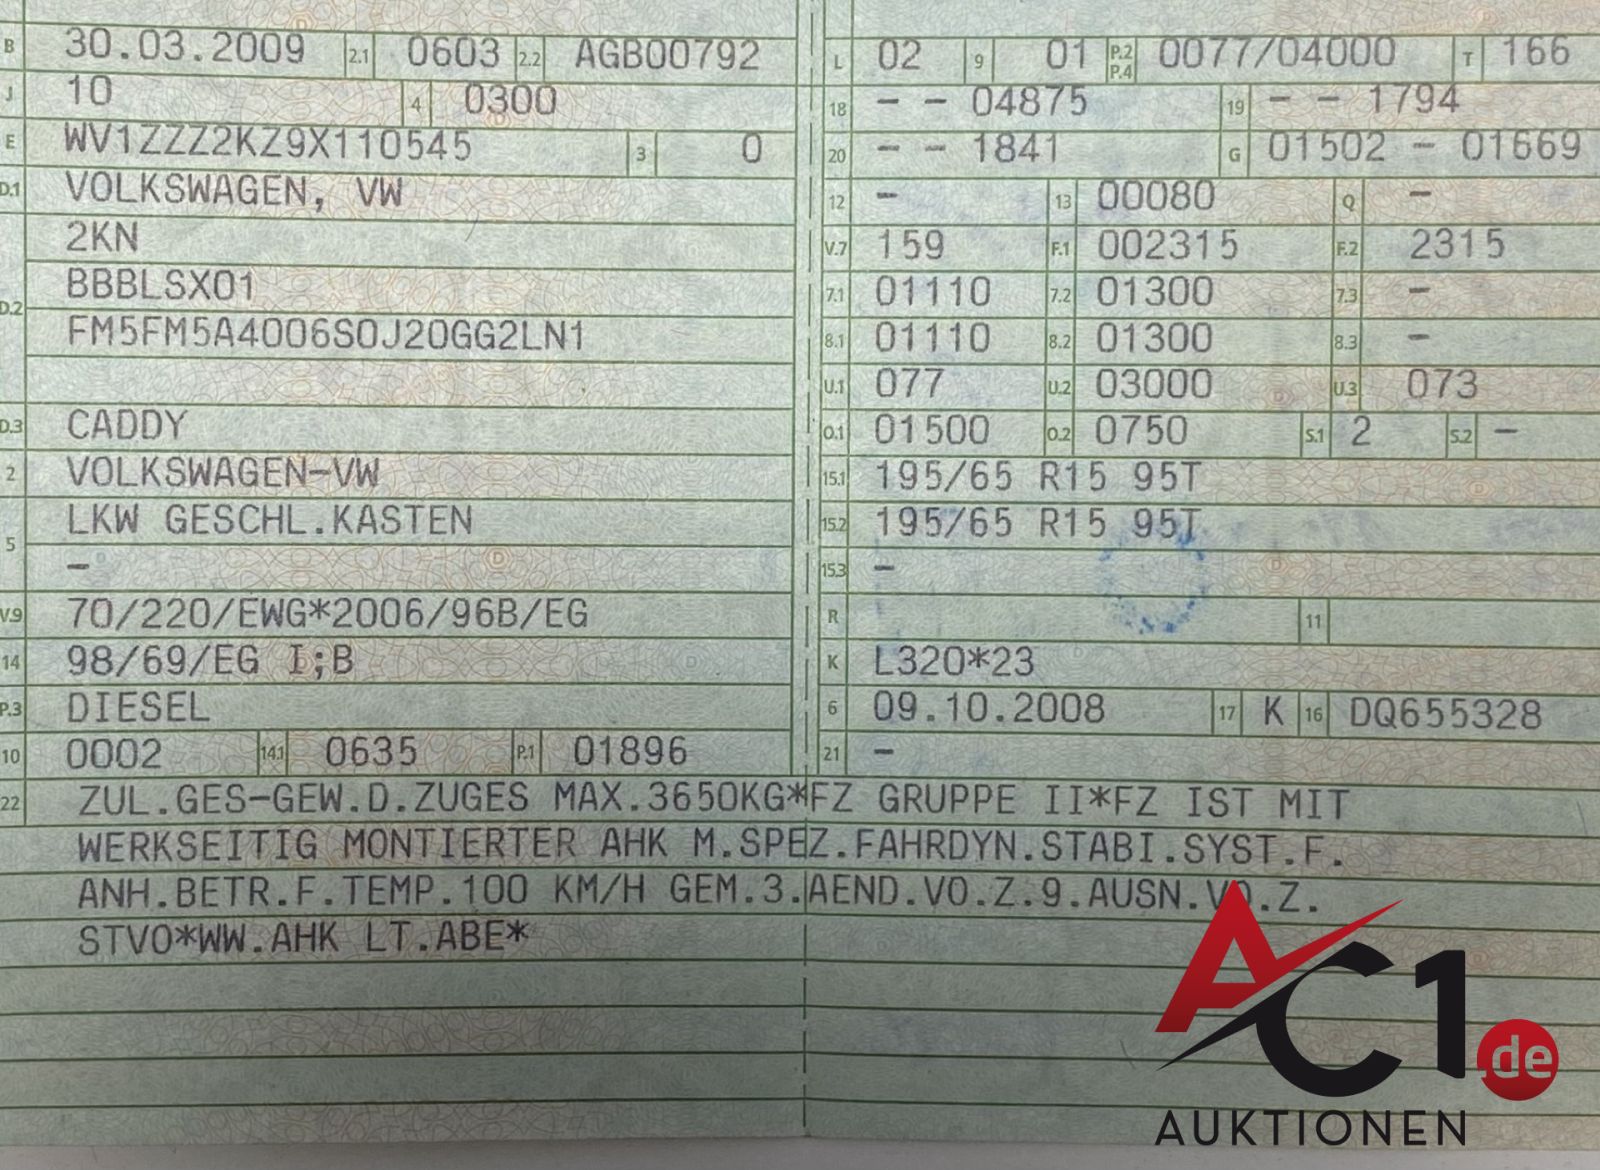 B 30.03.2009 2.1 0603 2.2 AGB00792
J 10 4 0300
E WV1ZZZ2KZ9X110545 3 0
D.1 VOLKSWAGEN, VW
2KN
D.2 BBBLSX01
FM5FM5A4006S0J20GG2LN1
D.3 CADDY
2 VOLKSWAGEN-VW
5 LKW GESCHL.KASTEN
-
V.9 70/220/EWG*2006/96B/EG
14 98/69/EG I;B
P.3 DIESEL
10 0002 14.1 0635 P.1 01896
L 02 9 01 P.2 P.4 0077/04000 T 166
18 - - 04875 19 - - 1794
20 - - 1841 G 01502 - 01669
12 - 13 00080 Q -
V.7 159 F.1 002315 F.2 2315
7.1 01110 7.2 01300 7.3 -
8.1 01110 8.2 01300 8.3 -
U.1 077 U.2 03000 U.3 073
O.1 01500 O.2 0750 S.1 2 S.2 -
15.1 195/65 R15 95T
15.2 195/65 R15 95T
15.3 -
R 11
K L320*23
6 09.10.2008 17 K 16 DQ655328
21 -
22 ZUL.GES-GEW.D.ZUGES MAX.3650KG*FZ GRUPPE II*FZ IST MIT
WERKSEITIG MONTIERTER AHK M.SPEZ.FAHRDYN.STABI.SYST.F.
ANH.BETR.F.TEMP.100 KM/H GEM.3.AEND.VO.Z.9.AUSN.VO.Z.
STVO*WW.AHK LT.ABE*
AC1.de
AUKTIONEN